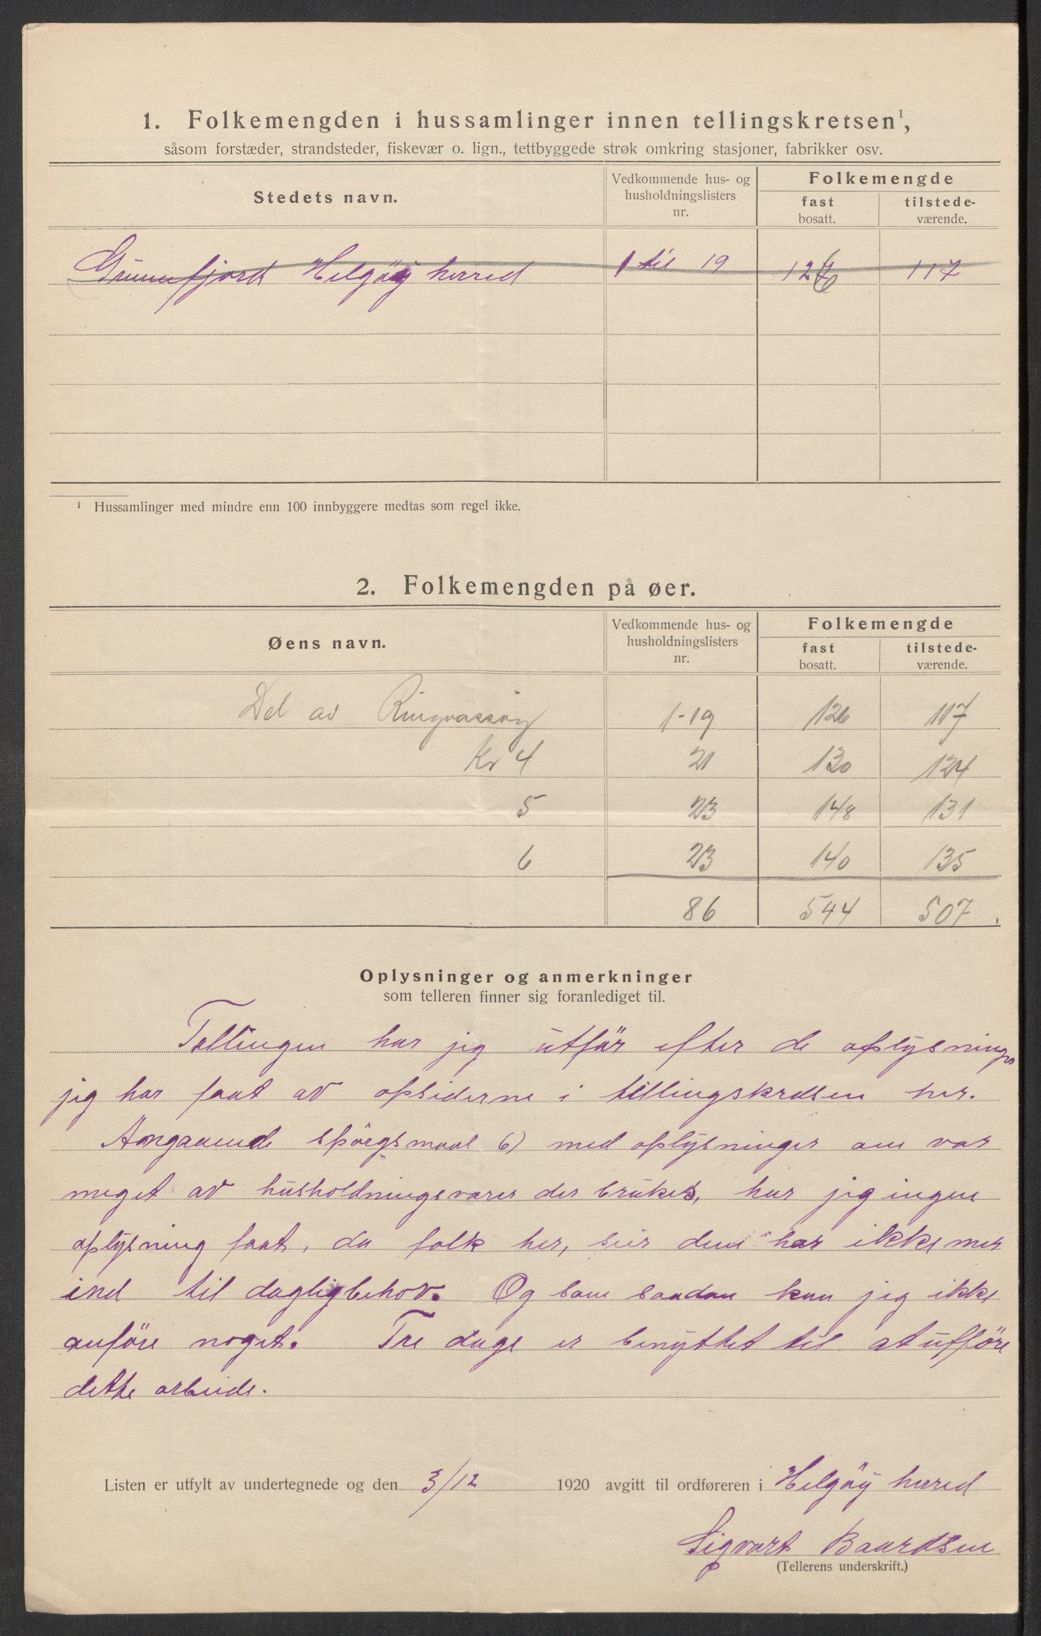 1. Folkemengden i hussamlinger innen tellingskretsen¹,
såsom forstæder, strandsteder, fiskevær o. lign., tettbyggede strøk omkring stasjoner, fabrikker osv.
Stedets navn. Vedkommende hus- og husholdningslisters nr. Folkemengde
fast bosatt. tilstede-værende.
Grunnfjord Helgöy herred 1 til 19 126 117
¹ Hussamlinger med mindre enn 100 innbyggere medtas som regel ikke.
2. Folkemengden på øer.
Øens navn. Vedkommende hus- og husholdningslisters nr. Folkemengde
fast bosatt. tilstede-værende.
Del av Ringvassøy 1-19 126 117
Kr 4 21 130 124
5 23 148 131
6 23 140 135
86 544 507.
Oplysninger og anmerkninger
som telleren finner sig foranlediget til.
Tellingen har jeg utför efter de oplysninger
jeg har faat av opsiderne i tellingskretsen her.
Angaaende spörgsmaal 6) med oplysninger om vor
meget av husholdningsvarer der brukes, har jeg ingen
oplysning faat, da folk her, seir dem har ikke mer
ind til dagligbehov. Og som saadan kan jeg ikke
anföre noget. Tre dage er benyttet til at utföre
dette arbeide.
Listen er utfylt av undertegnede og den 3/12 1920 avgitt til ordføreren i Helgöy herred
Sigvart Baardsen
(Tellerens underskrift.)